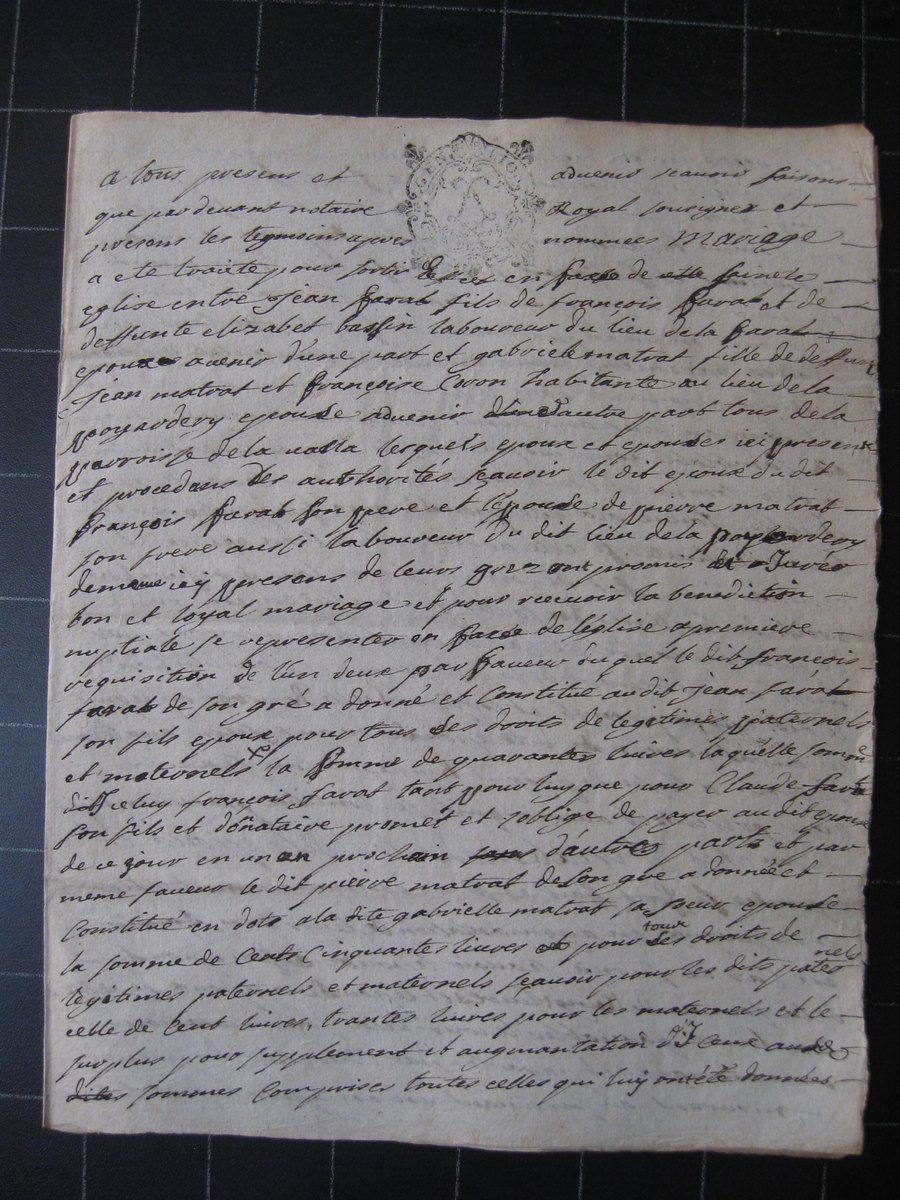 a tous presens et advenir scauoir faisons
que par deuant notaire Royal sousignez et
presens les temoins apres nommees Mariage
a ete traité pour sortir en face de sainete
eglise entre Jean farat fils de françois farat et de
deffunte elizabet bassin laboureur du lieu de la farat
epoux avenir d'une part et gabriele matrat fille de deffunt
jean matrat et françoise Coron habitante au lieu de la
poyardery epouse advenir d'autre part tous de la
parroisse de la ualla lesquels epoux et epouses ici presents
et procedans des authorités scauoir le dit epoux du dit
françois farat son pere et l'epouse de pierre matrat
son frere aussi laboureur du dit lieu de la poyardery
icy presens de leurs grez ont promis et Juréz
bon et loyal mariage et pour recuoir la benediction
nuptiale se representer en face de l'eglise a premiere
requisition de l'un deux par faueur duquel le dit françois
farat de son gré a donné et Constitué au dit jean farat
son fils epoux pour tous ses droits de legitimes paternels
et maternels la somme de quarantes liures laquelle somme
celuy françois farat tant pour luy que pour Claude farat
son fils et donataire promet et s'oblige de payer au dit epoux
de ce jour en un an prochain d'autre part et par
meme faueur le dit pierre matrat de son gre a donnée et
Constitué en dots a la dite gabrielle matrat sa soeur epouse
la somme de Cents Cinquantes liures et pour tous ses droits de
legitimes paternels et maternels scauoir pour les dits paternels
celle de Cent liures, trantes liures pour les maternels et le
surplus pour supplement et augmantation d'Iceux
dites sommes compriser toutes celles qui luy ont été données